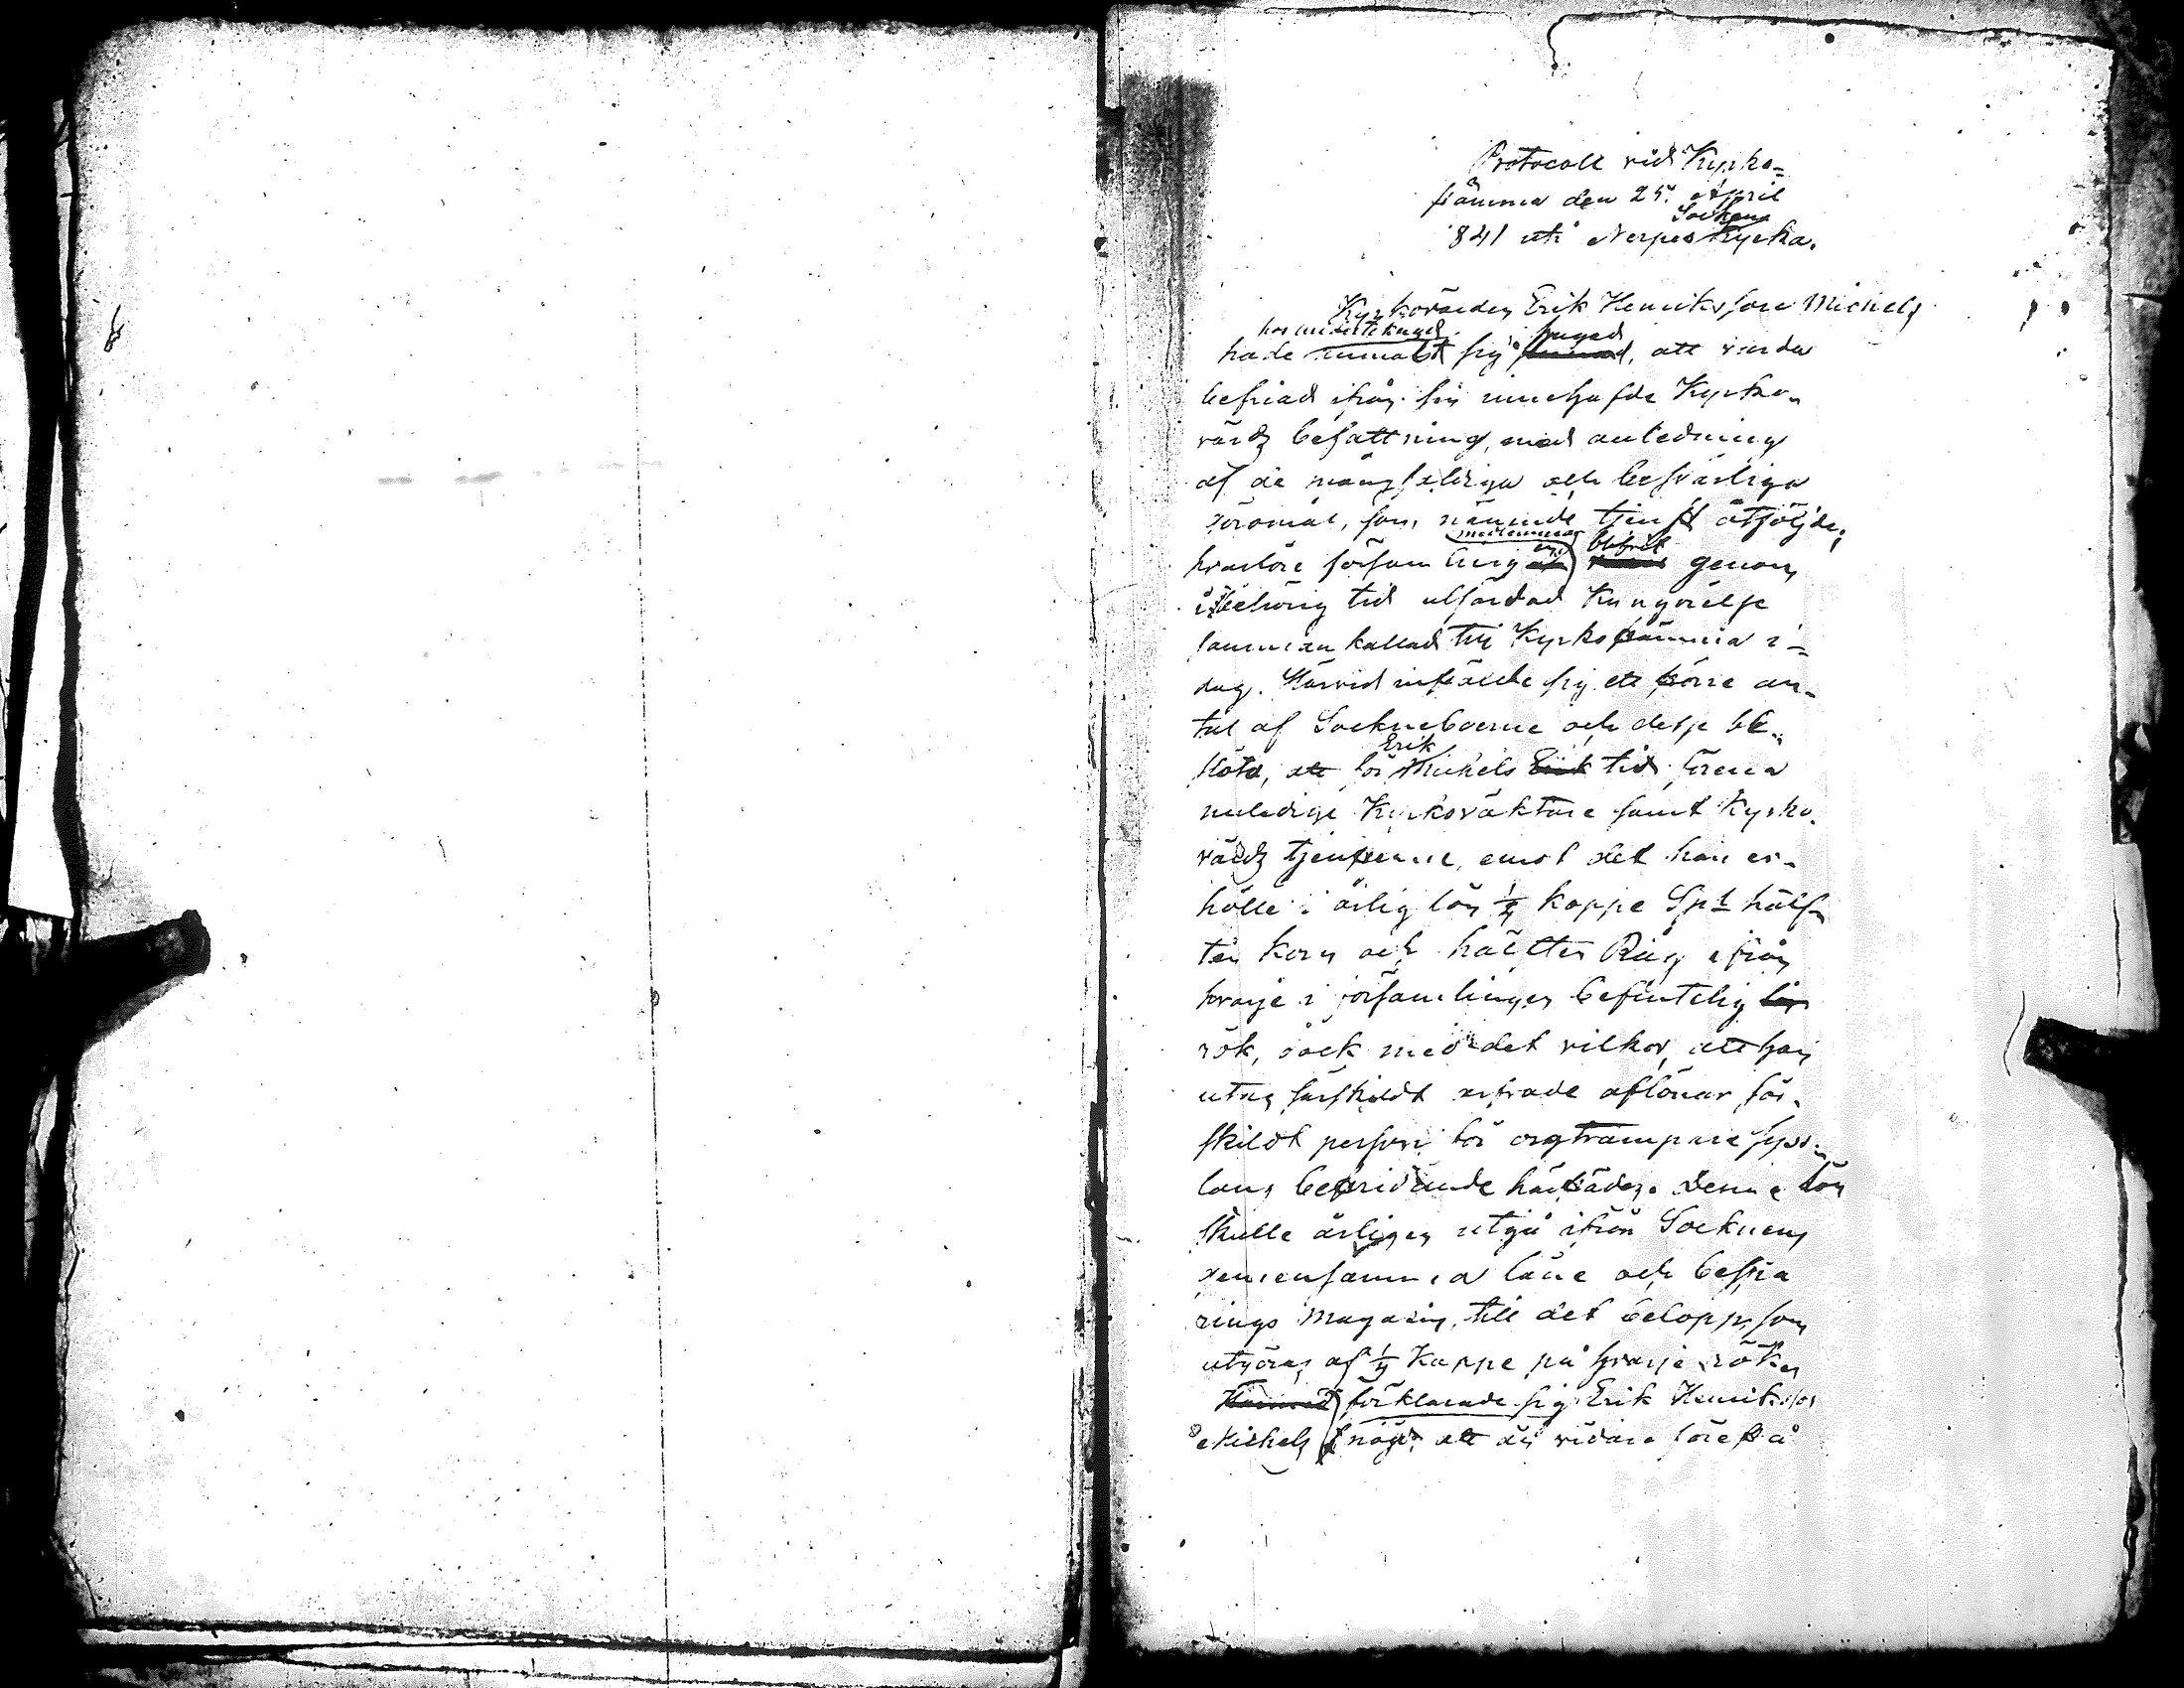 Protocoll vid Kyrko-
stämma den 25. April
1841 uti Nerpes Sockens Kyrka.
Kyrkovärden Erik Henriksson Michels
hade sig att varda
befriad ifrån sin innehafde Kyrko-
värds befattning, med anledning
af de mångfaldiga och besvärliga
göromål, som nämnde tjenst åtföljde;
hvarföre församling blifvit genom
i behörig tid utfärdad Kungörelse
sammankallad till Kyrkostämma i-
dag. Härvid infälde sig ett större an-
tal af Sockneboerne och desse be-
slöto, att för Erik Michels Erik tid förena
nuledige Kyrkoväktare samt Kyrko-
värds tjensterne, emot det han er-
hölle i årlig lön ¼ kappe Sp:l hälf-
ten korn och hälften Råg ifrån
hvarje i församlingen befintelig
rök, dock med det vilkor, att han
utan särskildt aflönar sär-
skildt person för orgtrampare syss-
lans bestridande härstädes. Denne lön
skulle årligen utgå ifrån Socknens
gemensamma låne och bespa
rings Magazin, till det belopp, som
utgöres af ¼ Kappe på hvarje röken
förklarade sig Erik Henriksson
Michels nögd, att än vidare förestå